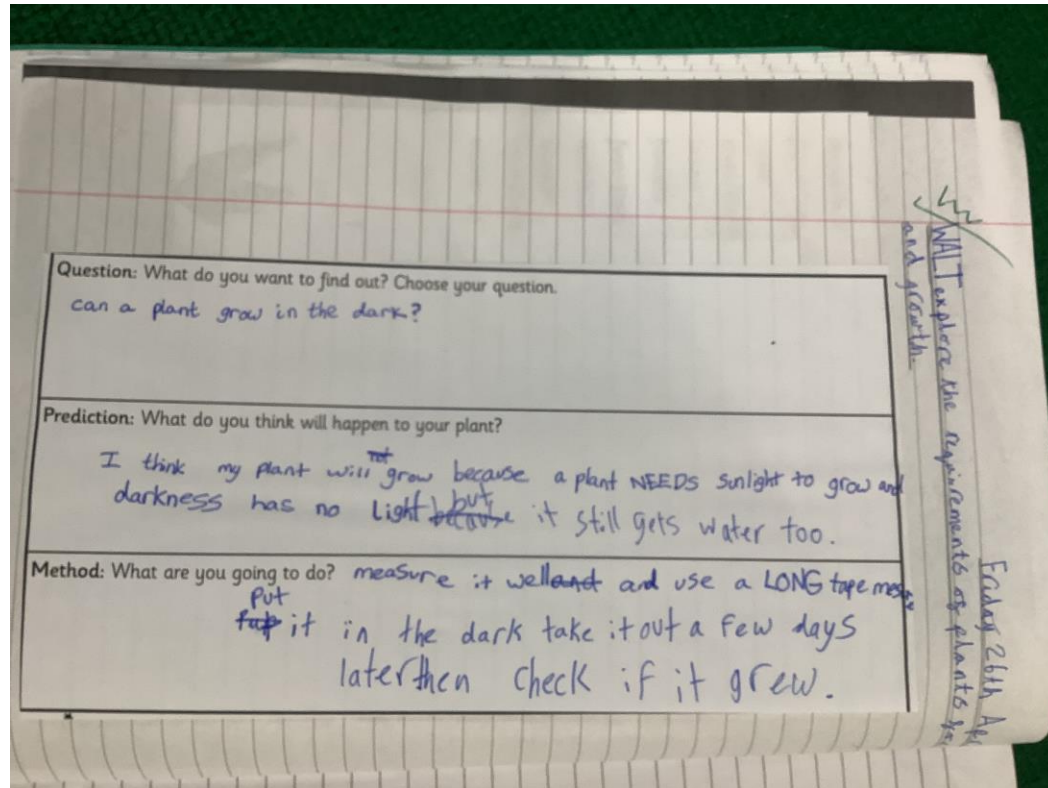 Friday 26th
WALT explore the requirements of plants
and growth.
Question: What do you want to find out? Choose your question.
can a plant grow in the dark?
Prediction: What do you think will happen to your plant?
I think my plant will not grow because a plant NEEDS sunlight to grow and
darkness has no light but it still gets water too.
Method: What are you going to do? measure it well and use a LONG tape
put it in the dark take it out a few days
later then check if it grew.